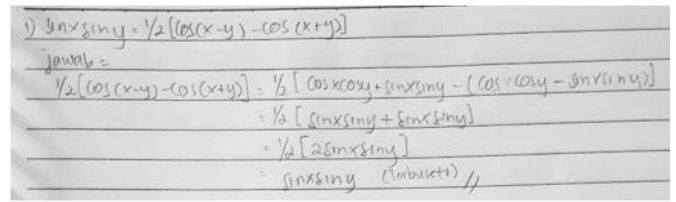 1) sinxsiny = 1/2 [cos(x-y) - cos(x+y)]
jawab =
1/2 [cos(x-y) - cos(x+y)] = 1/2 [cosxcosy + sinxsiny - (cosxcosy - sinxsiny)]
= 1/2 [sinxsiny + sinxsiny]
= 1/2 [2sinxsiny]
= sinxsiny (terbukti) //